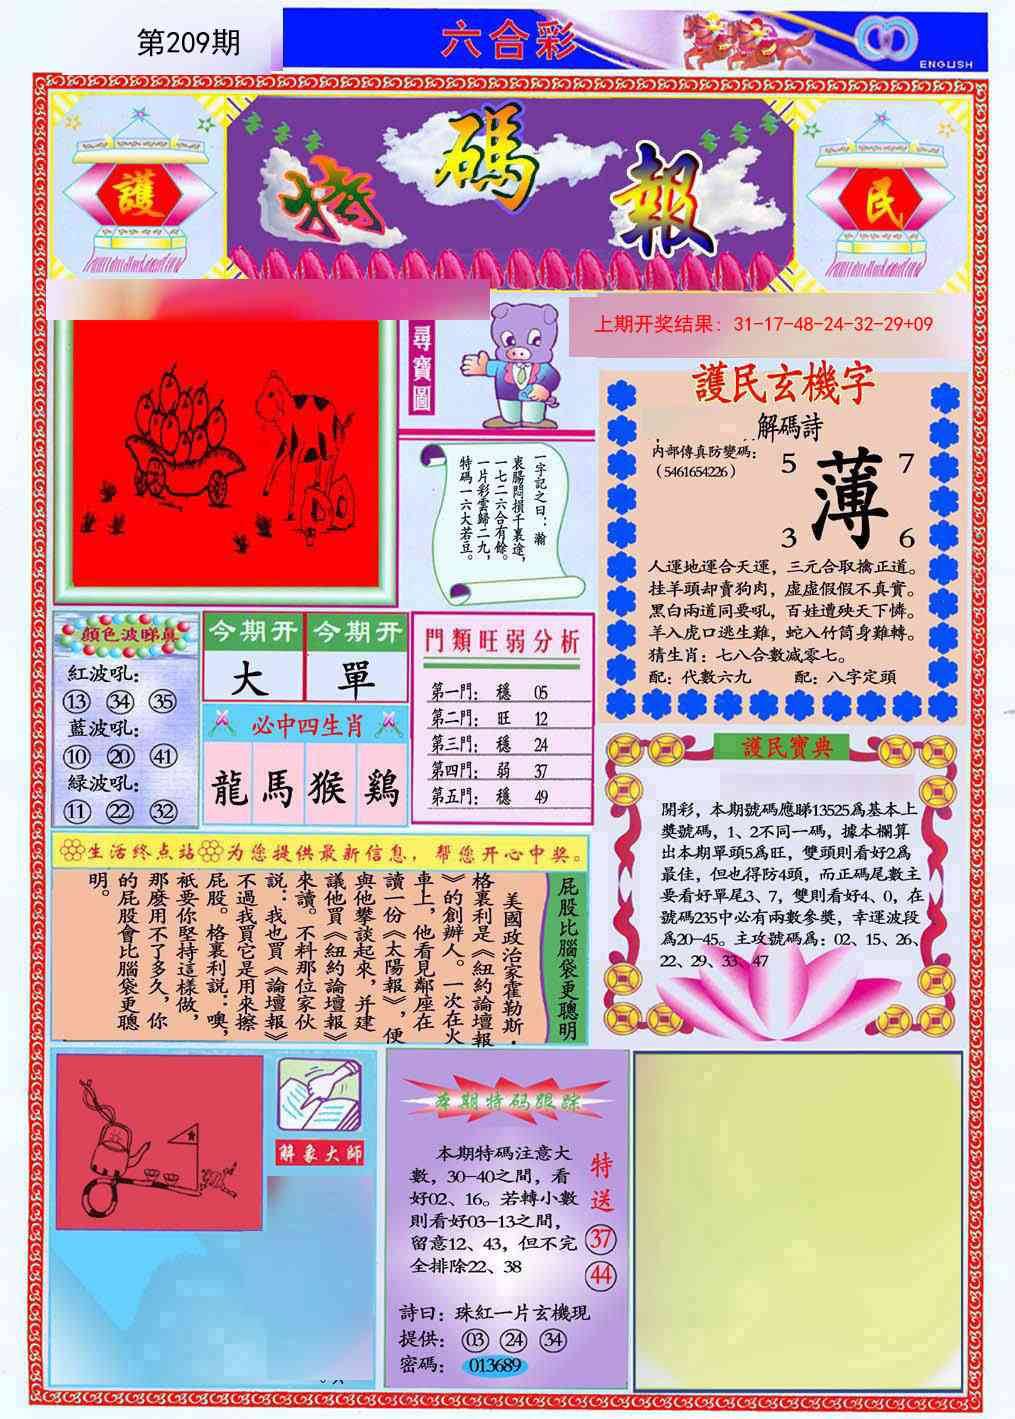 第209期
六合彩
ENGLISH
特碼報
護
民
尋寶圖
上期开奖结果：31-17-48-24-32-29+09
一字記之曰：瀚
衷腸悶損千裏途，
一七二六合有餘。
一片彩雲歸二九，
特碼一六大若豆。
護民玄機字
解碼詩
内部傳真防變碼：
（5461654226）
5
7
薄
3
6
人運地運合天運，三元合取擒正道。
挂羊頭却賣狗肉，虚虚假假不真實。
黑白兩道同要吼，百娃遭殃天下憐。
羊入虎口逃生難，蛇入竹筒身難轉。
猜生肖：七八合數减零七。
配：代數六九 配：八字定頭
顔色波睇真
紅波吼：
13 34 35
藍波吼：
10 20 41
緑波吼：
11 22 32
今期开 今期开
大 單
必中四生肖
龍 馬 猴 鷄
門類旺弱分析
第一門： 穩 05
第二門： 旺 12
第三門： 穩 24
第四門： 弱 37
第五門： 穩 49
護民寶典
開彩，本期號碼應睇13525爲基本上
獎號碼，1、2不同一碼，據本欄算
出本期單頭5爲旺，雙頭則看好2爲
最佳，但也得防4頭，而正碼尾數主
要看好單尾3、7，雙則看好4、0，在
號碼235中必有兩數參獎，幸運波段
爲20—45。主攻號碼爲：02、15、26、
22、29、33、47
生活终点站 为您提供最新信息，帮您开心中奖。
屁股比腦袋更聰明
美國政治家霍勒斯·
格裏利是《紐約論壇報
》的創辦人。一次在火
車上，他看見鄰座在
讀一份《太陽報》，便
與他攀談起來，并建
議他買《紐約論壇報》
來讀。不料那位家伙
説：我也買《論壇報》
不過我買它是用來擦
屁股。格裏利説：噢，
衹要你堅持這樣做，
那麽用不了多久，你
的屁股會比腦袋更聰
明。
解象大師
本期特码跟踪
本期特碼注意大
數，30—40之間，看
好02、16。若轉小數
則看好03—13之間，
留意12、43，但不完
全排除22、38
特送
37
44
詩曰：珠紅一片玄機現
提供： 03 24 34
密碼： 013689